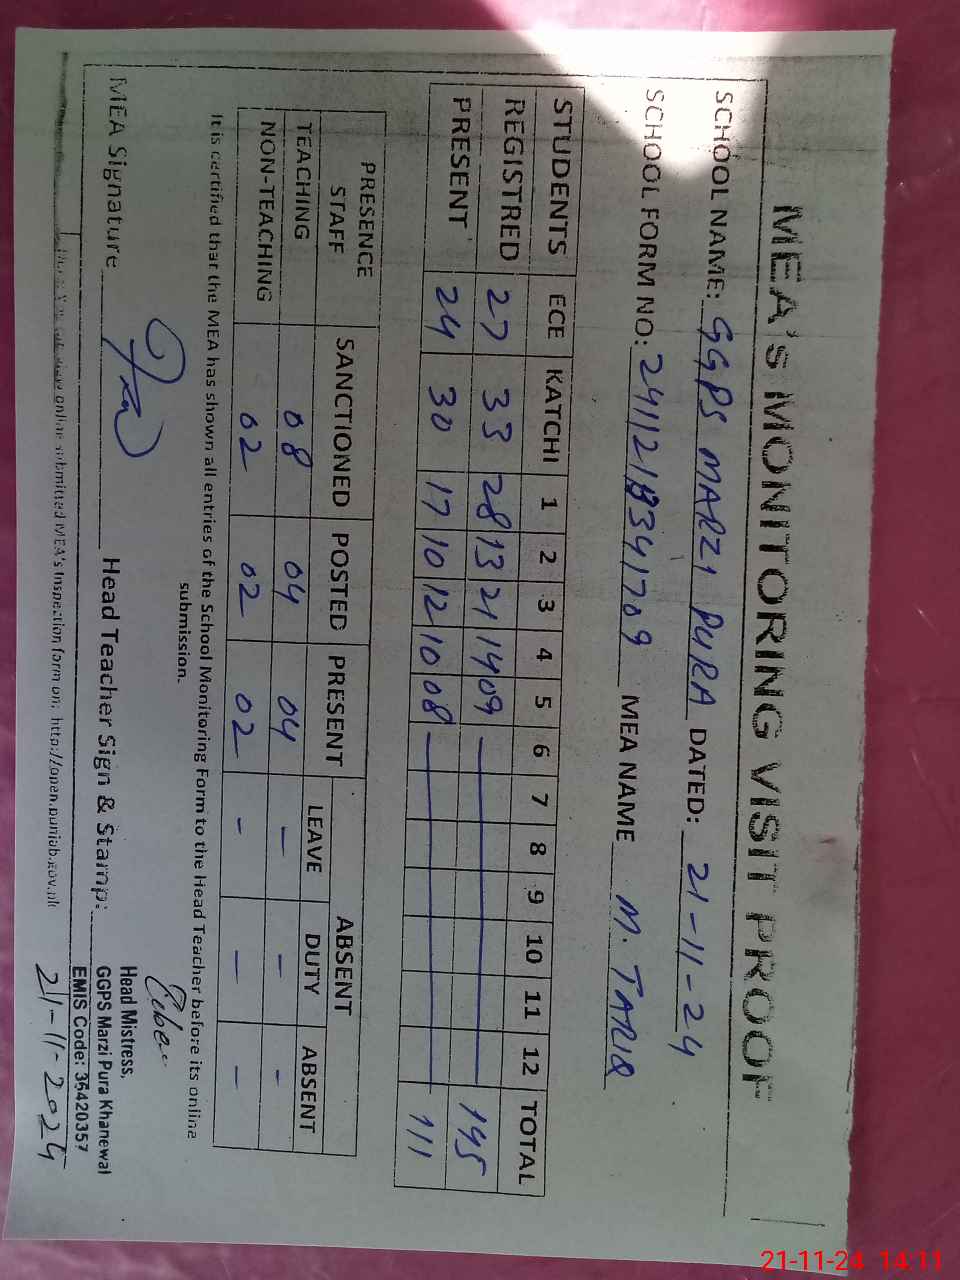 MEA'S MONITORING VISIT PROOF
SCHOOL NAME: GGPS MARZI PURA DATED: 21-11-24
SCHOOL FORM NO: MEA NAME M. TARIQ
STUDENTS ECE KATCHI 1 2 3 4 5 6 7 8 9 10 11 12 TOTAL
REGISTRED 27 33 28 13 21 14 09 145
PRESENT 24 30 17 10 12 10 08 111
PRESENCE STAFF SANCTIONED POSTED PRESENT ABSENT
LEAVE DUTY ABSENT
TEACHING 08 04 04 - - -
NON-TEACHING 02 02 02 - - -
It is certified that the MEA has shown all entries of the School Monitoring Form to the Head Teacher before its online
submission.
MEA Signature Head Teacher Sign & Stamp:
Head Mistress,
GGPS Marzi Pura Khanewal
EMIS Code: 36420357
21-11-2024
online submitted MEA's Inspection form on: http://open.punjab.gov.pk
21-11-24 14:11